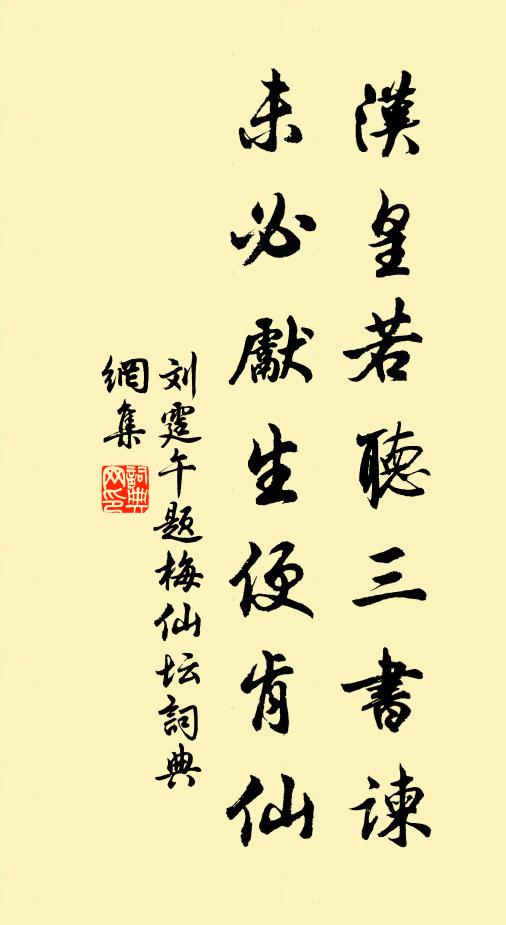 漢皇若聽三書諫
未必獻生便肯仙
刘霆午题梅仙坛词典
網集
詞典
网印